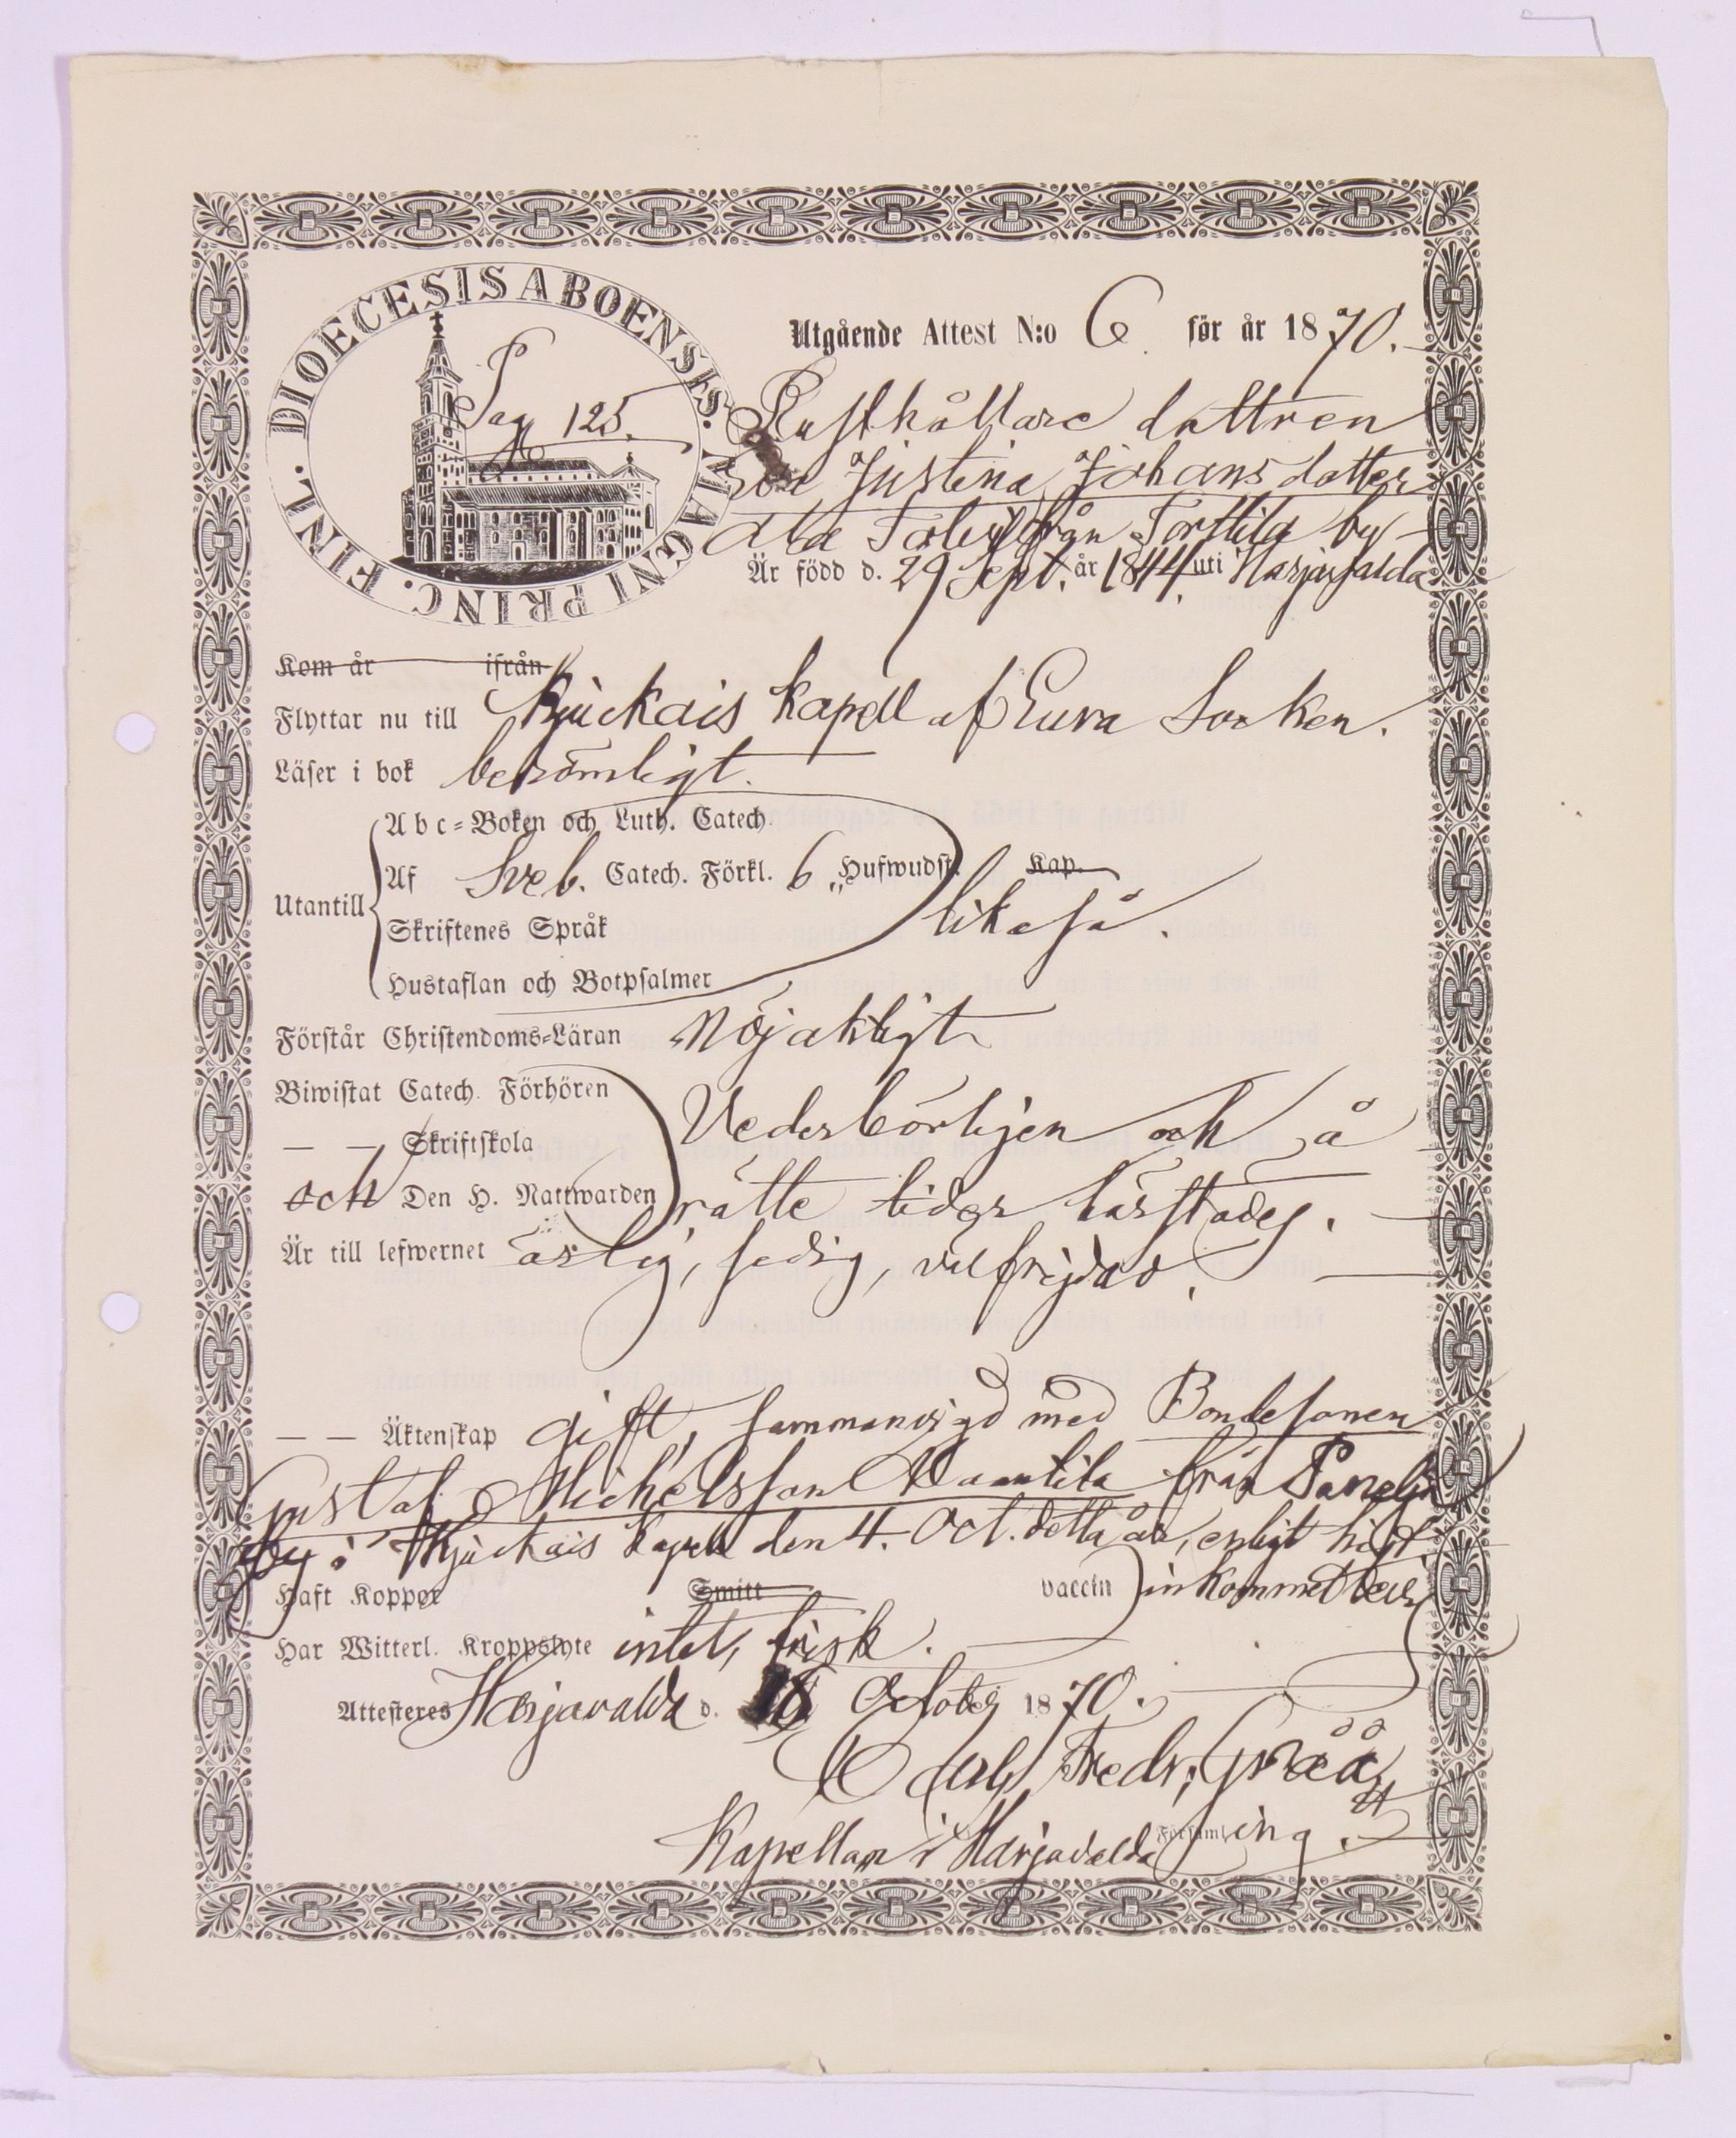 DIOECESIS ABOENSIS. MAGNI PRINC. FINL.
Pag 125.
Utgående Attest N:o 6. för år 1870.
Rusthållare dottren
Justina Johansdotter
från Torttila by
Är född d. 29 Sept. år 1844. uti Harjavalda
Kom år ifrån
Flyttar nu till Kjuckais kapell af Eura Socken.
Läser i bok berömligt.
Abc-Boken och Luth. Catech.
Af Sveb. Catech. Förkl. 6 Hufwudst. Kap.
Utantill
Skriftenes Språk
likaså.
Hustaflan och Botpsalmer
Förstår Christendoms-Läran Nöjaktigt
Biwistat Catech. Förhören
Vederbörligen och å
— — Skriftskola
och Den H. Nattwarden rätte tider härstädes.
Är till lefwernet ärlig, sedig, välfrejdad.
— — Äktenskap gift, sammanvigd med Bondesonen
Gustaf Michelsson från Panelia
by i Kjuckais Kapell den 4. Oct. detta år, enligt hit
Haft Koppor Smitt vaccin inkommet bevis
Har Witterl. Kroppslyte intet, frisk.
Attesteras Harjavalda d. 18 October 1870.
Carl Fredr. Gråå
Kapellan i Harjavalda Församling.